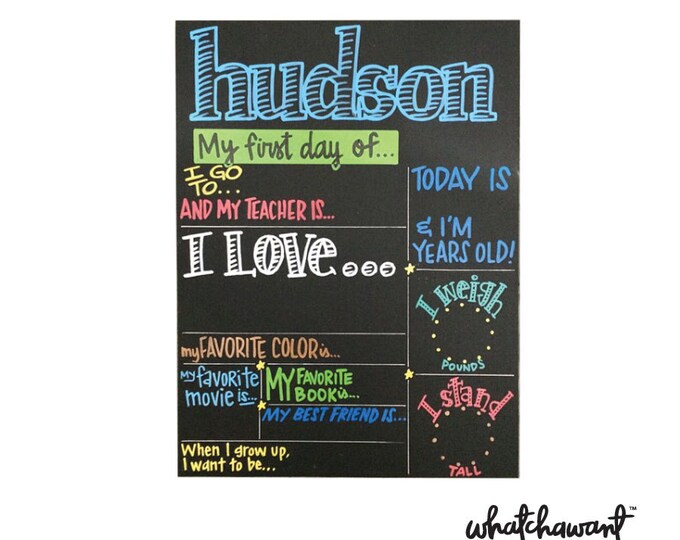 hudson
My first day of...
I GO
TO...
AND MY TEACHER IS...
TODAY IS
& I'M
YEARS OLD!
I LOVE...
I weigh
POUNDS
my FAVORITE COLOR is...
My favorite
movie is...
MY FAVORITE
BOOK is...
MY BEST FRIEND IS...
I stand
TALL
When I grow up,
I want to be...
whatchawant™